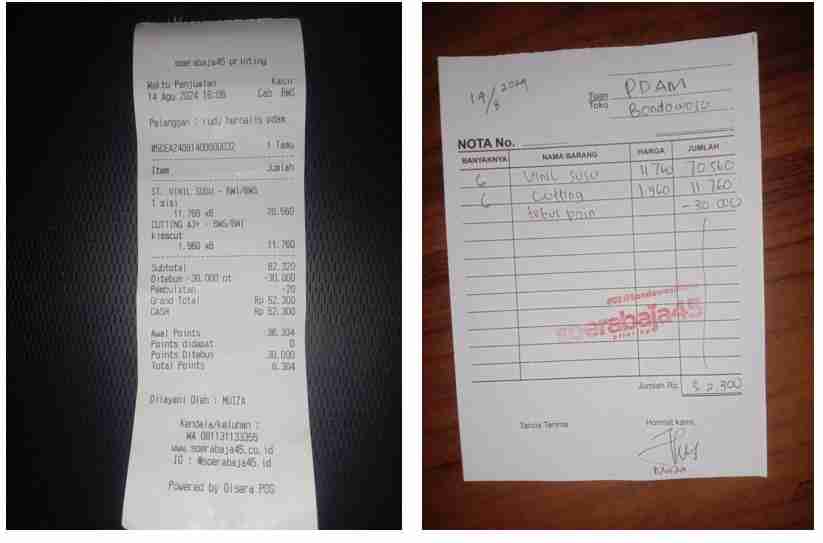 soerabaja45 printing
Waktu Penjualan Kasir
14 Agu 2024 16:06 Cab BWS
Pelanggan : rudi hurnalis pdam
1 Tamu
Item Jumlah
ST. VINIL SUSU - BWI/BWS
1 sisi
11.760 x6 70.560
CUTTING A3+ - BWS/BWI
kisscut
1.960 x6 11.760
Subtotal 82.320
Ditebus -30.000 pt -30.000
Pembulatan -20
Grand Total Rp 52.300
CASH Rp 52.300
Awal Points 36.304
Points didapat 0
Points Ditebus 30.000
Total Points 6.304
Dilayani Oleh : MUIZA
Kendala/keluhan :
WA 081131133355
www.soerabaja45.co.id
IG : @soerabaja45.id
Powered by Olsera POS
14/8 2024
Tuan PDAM
Toko Bondowoso
NOTA No.
BANYAKNYA NAMA BARANG HARGA JUMLAH
6 VINIL SUSU 11.760 70.560
6 Cutting 1.960 11.760
tebus poin -30.000
soerabaja45
printing
Jumlah Rp. 52.300
Tanda Terima Hormat kami,